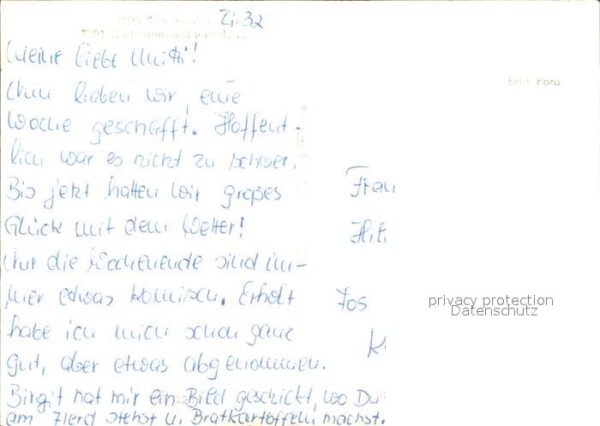 Zi. 32
Meine liebe Mutti!
Nun haben wir eine
Woche geschafft. Hoffent-
lich war es nicht zu schwer.
Bis jetzt hatten wir großes
Glück mit dem Wetter!
Nur die Wochenende sind im-
mer etwas komisch. Erholt
habe ich mich schon ganz
gut, aber etwas abgenommen.
Birgit hat mir ein Bild geschickt, wo Du
am Herd stehst u. Bratkartoffeln machst.
Echt Foto
Frau
privacy protection
Datenschutz